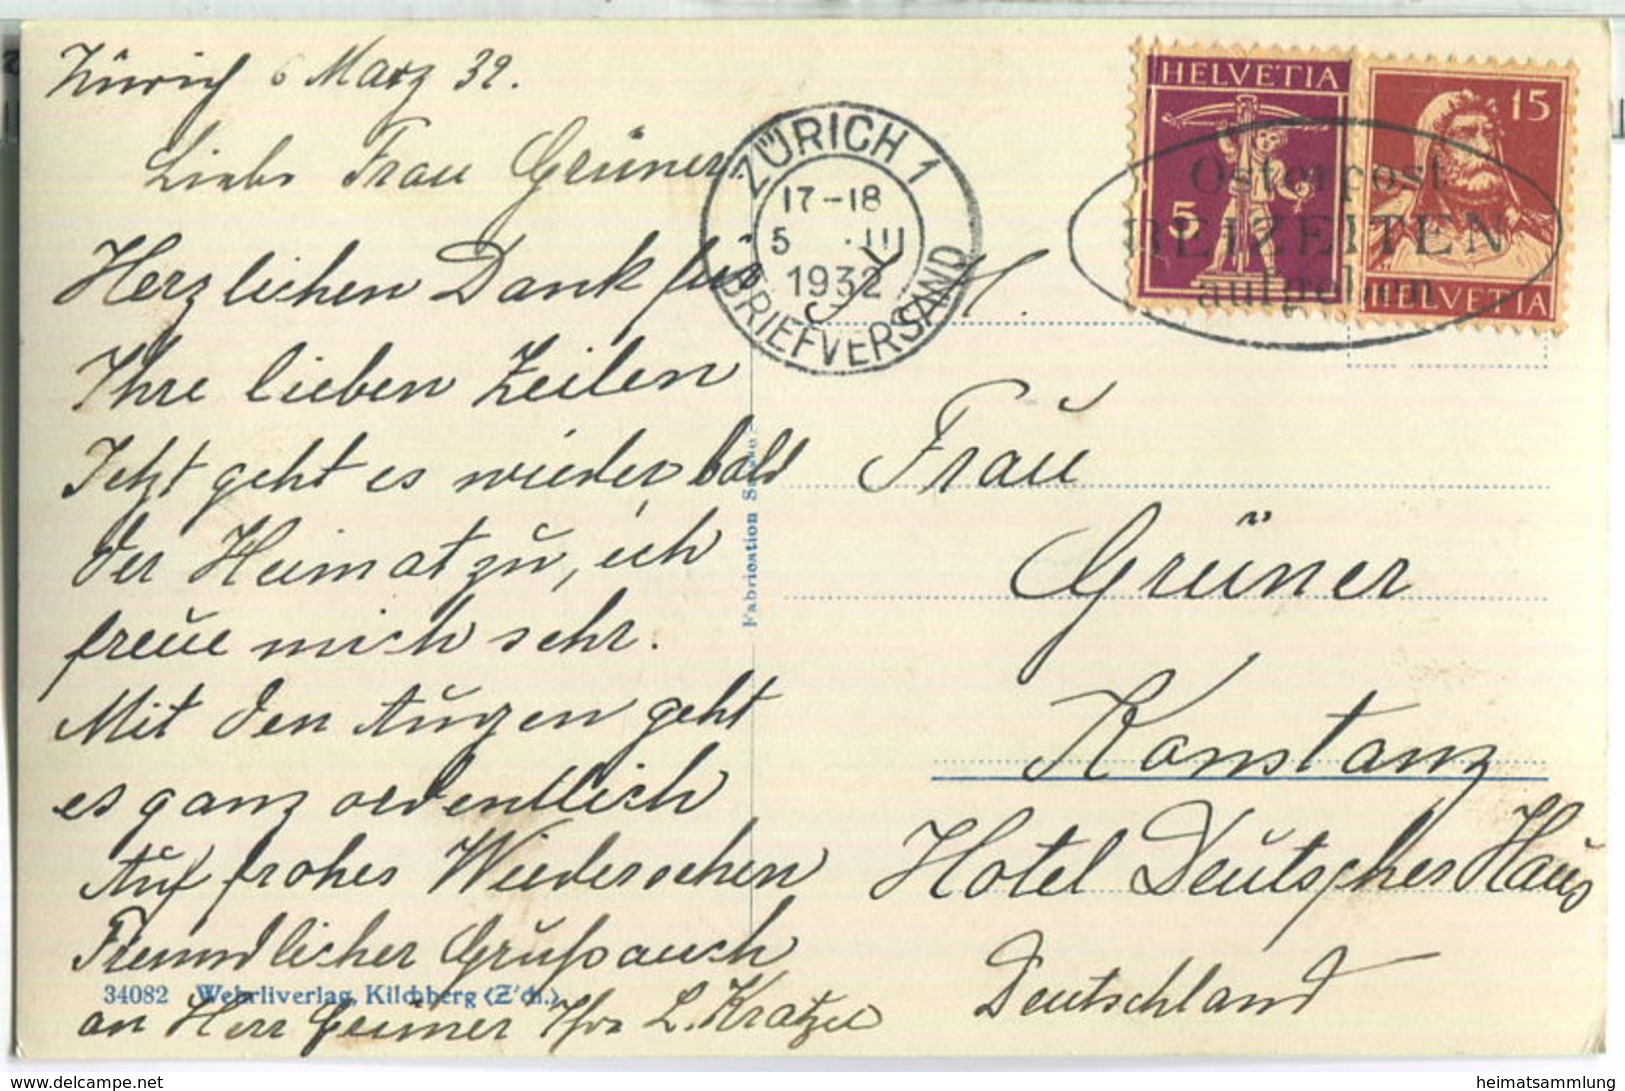 Zürich 6 März 32.
Liebe Frau Grüner.
Herzlichen Dank für
Ihre lieben Zeilen
Jetzt geht es wieder bald
der Heimat zu, ich
freue mich sehr.
Mit den Augen geht
es ganz ordentlich
Auf frohes Wiedersehen
Freundlicher Gruß auch
an Herr Grüner Ihre L. Kratzel
34082 Wehrliverlag, Kilchberg (Z'ch.)
Fabrication Suisse
ZÜRICH 1
17-18
5 .III
1932
BRIEFVERSAND
HELVETIA
5
15
HELVETIA
Osterpost
BEIZEITEN
aufgeben
Frau
Grüner
Konstanz
Hotel Deutsches Haus
Deutschland
delcampe.net
heimatsammlung